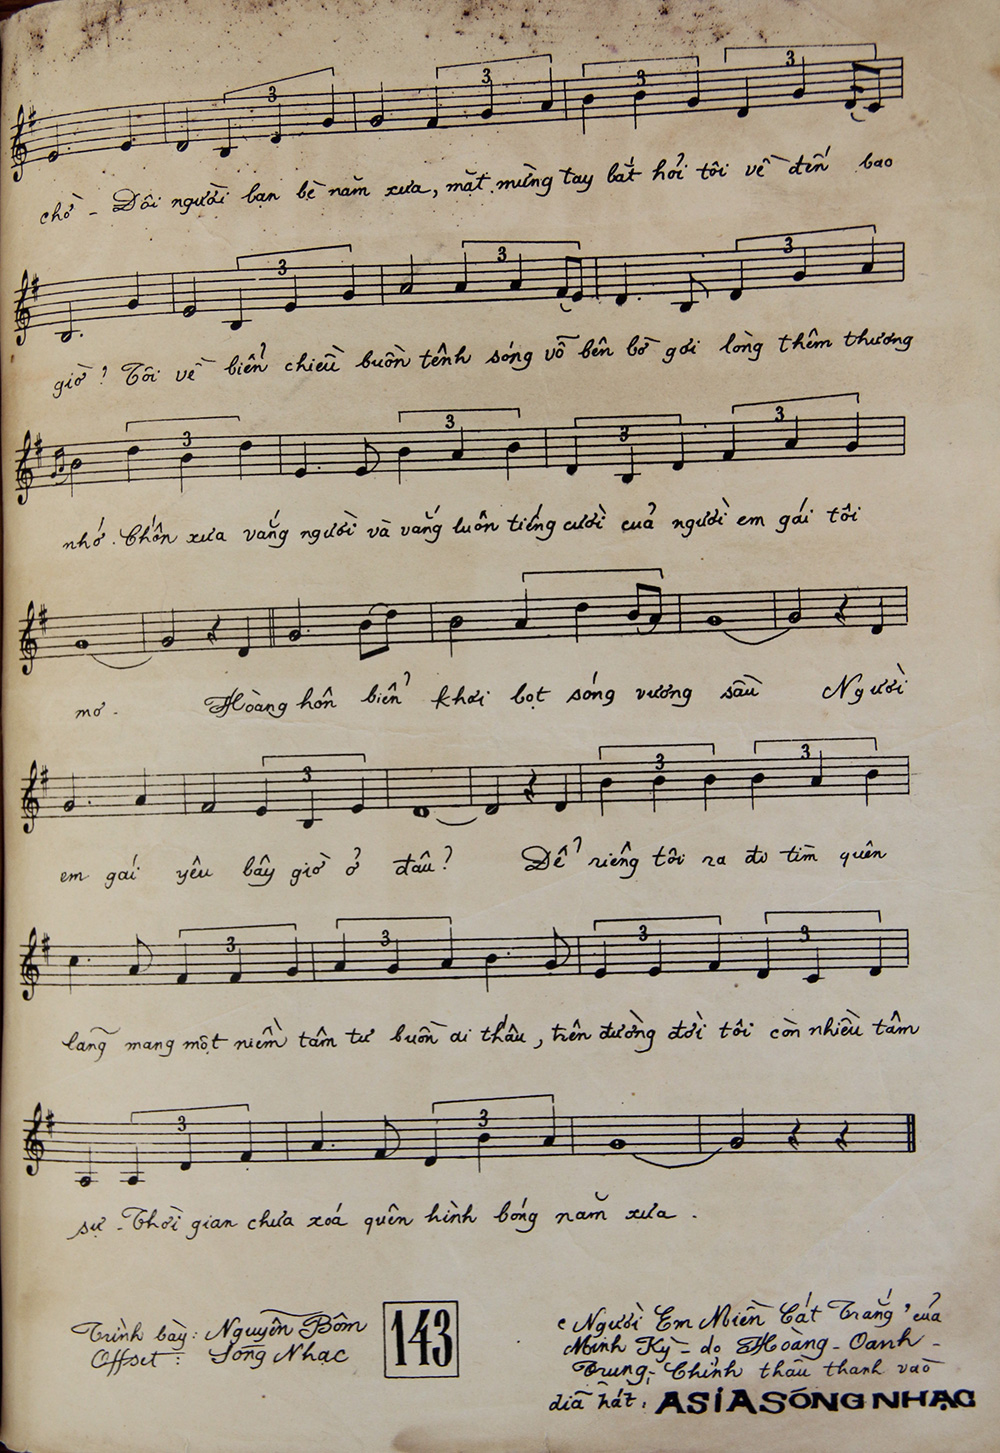 chờ - Đôi người bạn bè năm xưa, mặt mừng tay bắt hỏi tôi về đến bao
giờ? Tôi về biển chiều buồn tênh sóng vỗ bên bờ gợi lòng thêm thương
nhớ. Chốn xưa vắng người và vắng luôn tiếng cười của người em gái tôi
mơ. Hoàng hôn biển khơi bọt sóng vương sầu Người
em gái yêu bây giờ ở đâu? Để riêng tôi ra đi tìm quên
lãng mang một niềm tâm tư buồn ai thấu, trên đường đời tôi còn nhiều tâm
sự - Thời gian chưa xoá quên hình bóng năm xưa.
Trình bày: Nguyễn Bôm
Offset: Sóng Nhạc
143
"Người Em Miền Cát Trắng" của
Minh Kỳ - do Hoàng - Oanh -
Trung - Chỉnh thâu thanh vào
dĩa hát: ASIA SÓNG NHẠC